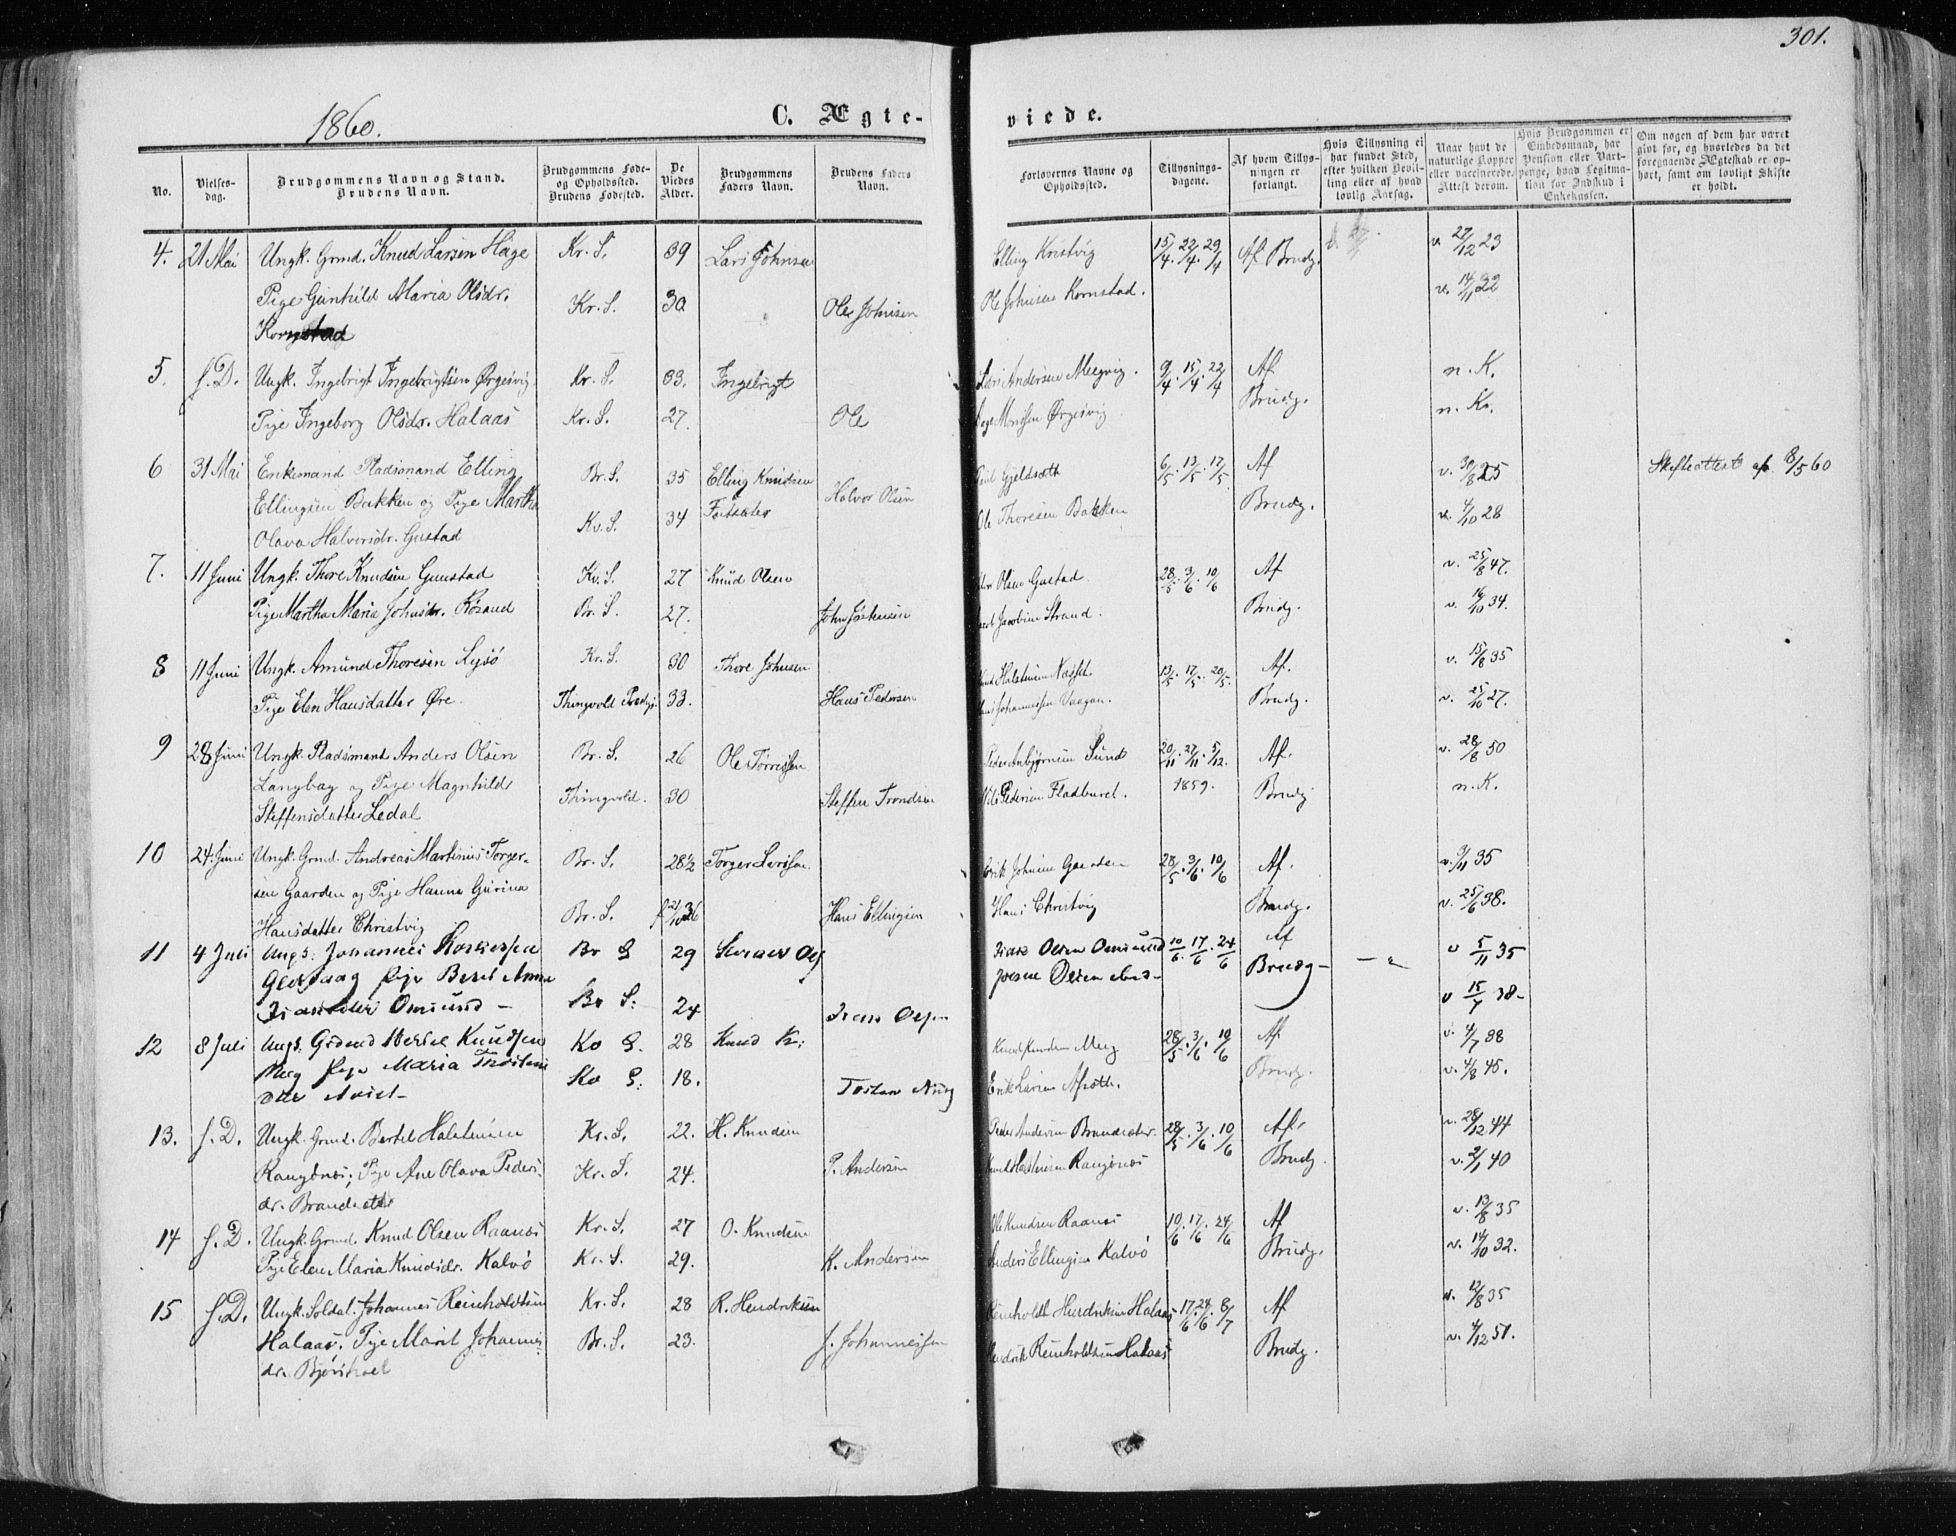 301.
1860.
C. Ægte-
viede.
No.
Vielses-
dag.
Brudgommens Navn og Stand.
Brudens Navn.
Brudgommens Føde-
og Opholdssted.
Brudens Fødested.
De
Viedes
Alder.
Brudgommens
Faders Navn.
Brudens Faders
Navn.
Forlovernes Navne og
Opholdssted.
Tillysnings-
dagene.
Af hvem Tillys-
ningen er
forlangt.
Hvis Tillysning ei
har fundet Sted,
efter hvilken Bevil-
ling eller af hvad
lovlig Aarsag.
Naar havt de
naturlige Kopper
eller vaccinerede.
Attest derom.
Hvis Brudgommen er
Embedsmand, har
Pension eller Vart-
penge, hvad Legitima-
tion for Indskud i
Enkekassen.
Om nogen af dem har været
givt for, og hvorledes da det
foregaaende Ægteskab er op-
hørt, samt om lovligt Skifte
er holdt.
4. 21 Mai Ungk. Grmd. Knud Larsen Hage Kr. S. 39 Lars Johnsen Elling Kristvig 15/4. 22/4. 29/4 Af Brudg. v. 27/12 23
Pige Gunhild Maria Olsdr. Kr. S. 30 Ole Johnsen Ole Johnsen Kornstad. v. 14/11 22
Kornstad
5. f. D. Ungk. Ingebrigt Ingebrigtsen Ørgesvig Kr. S. 33. Ingebrigt Lars Andersen Meegvig. 9/4. 15/4. 22/4 Af n. K.
Pige Ingeborg Olsdr. Halaas Kr. S. 27. Ole Ørgesvig Brudg. n. K.
6 31 Mai Enkemand Pladsmand Elling Br. S. 35 Elling Knudsen Gjeldsæth 6/5 13/5 17/5 Af v. 30/8 25 Skifteattest af 8/5 60
Ellingsen Bakken og Pige Martha Halvor Olsen Brudg.
Olava Halvorsdr. Gustad Kv. S. 34 Ole Thoresen Bakken v. 4/10 28
7. 11 Juni Ungk. Thore Knudsen Gunstad Kv. S. 27 Knud Olsen Olsen Gustad 28/5. 3/6. 10/6 Af v. 25/8 47.
Pige Martha Maria Johnsdr. Røsand Br. S. 27. John Jacobsen Strand. Brudg. v. 16/10 34.
8 11 Juni Ungk. Amund Thoresen Lysø Kr. S. 30 Thore Johnsen Halstensen 13/5. 17/5. 20/5. Af. v. 15/8 35
Pige Elen Hansdatter Øre. Thingvold 33. Hans Pedersen Johannessen Vaagan. Brudg. v. 25/10 27.
9 28 Juni Ungk. Pladsmand Anders Olsen Br. S. 26 Ole Peder Sund 20/11. 27/11. 5/12. Af. v. 28/8 50
Langbag og Pige Magnhild Thingvold. 30 Steffen Trondsen Nils Pedersen 1859. Brudg. n. K.
Steffensdatter Ledal
10 24. Juni Ungk. Grmd. Andreas Martinus Torger- Br. S. 28½ Torger Larssen Erik Johnsen Gaarden 28/5. 3/6. 10/6 Af. v. 9/11 35
sen Gaarden og Pige Hanna Gurina
Hansdatter Christvig Br. S. Hans Ellingsen Hans Christvig Brudg. v. 25/6 38.
11 4 Juli Ungk. Johannes Br S 29 Olsen Omsund 10/6. 17/6. 24/6 Af v 5/11 35
Pige Beret Anna Olsen Brudg – – "
Omsund – Br S. 24 v 15/7 38 –
12 8 Juli Ungk. Grdmd Knudsen Ko S. 28 Knud K: Knud Knudsen Meeg 28/5. 3/6. 10/6 Af v. 4/7 38
Meeg Pige Maria Ko S. 18. Erik Larsen Brudg. v. 4/8 45.
13. f. D. Ungk. Grmd. Bertel Halstensen Kr. S. 22. H. Knudsen Peder Andersen Brandsæter. 28/5. 3/6. 10/6 Af. v. 28/12 44
Rangønæs; Pige Ane Olava Peders- Kr. S. 24. P. Andersen Knud Halstensen Rangønæs Brudg. v. 2/1 40
dr. Brandsæter
14 f. D. Ungk. Grmd. Knud Olsen Raanæs Kr. S. 27 O. Knudsen Ole Knudsen Raanæs 10/6. 17/6. 24/6 Af v. 13/8 35
Pige Elen Maria Knudsdr. Kalvø Kr. S. 29. K. Andersen Anders Ellingsen Kalvø Brudg. v. 14/10 32.
15 f. D. Ungk. Soldat. Johannes Reinholdtsen Kr. S. 28 R. Hendriksen Reinholdt Hendriksen Halaas 17/6. 24/6. 8/7 Af v. 12/8 35
Halaas. Pige Marit Johannes- Br. S. 23. J. Johannessen Hendrik Reinholdtsen Halaas Brudg. v. 4/12 51.
dr.